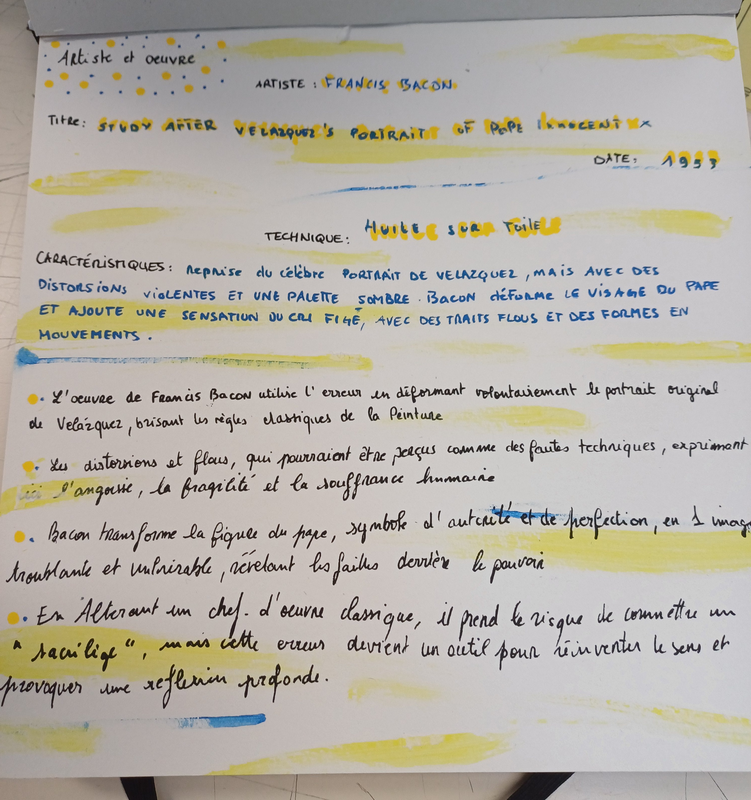 Artiste et oeuvre
ARTISTE : FRANCIS BACON
Titre : STUDY AFTER VELAZQUEZ'S PORTRAIT OF POPE INNOCENT X
DATE : 1953
TECHNIQUE : HUILE SUR TOILE
CARACTÉRISTIQUES : Reprise du célèbre PORTRAIT DE VELAZQUEZ, MAIS AVEC DES
DISTORSIONS VIOLENTES ET UNE PALETTE SOMBRE. BACON DÉFORME LE VISAGE DU PAPE
ET AJOUTE UNE SENSATION DU CRI FIGÉ, AVEC DES TRAITS FLOUS ET DES FORMES EN
MOUVEMENTS.
. L'oeuvre de Francis Bacon utilise l'erreur en déformant volontairement le portrait original
de Velázquez, brisant les règles classiques de la Peinture
. Les distorsions et flous, qui pourraient être perçus comme des fautes techniques, expriment
ici l'angoisse, la fragilité et la souffrance humaine
. Bacon transforme la figure du pape, symbole d'autorité et de perfection, en 1 image
troublante et vulnérable, révélant les failles derrière le pouvoir
. En Altérant un chef-d'oeuvre classique, il prend le risque de commettre un
"sacrilège", mais cette erreur devient un outil pour réinventer le sens et
provoquer une reflexion profonde.